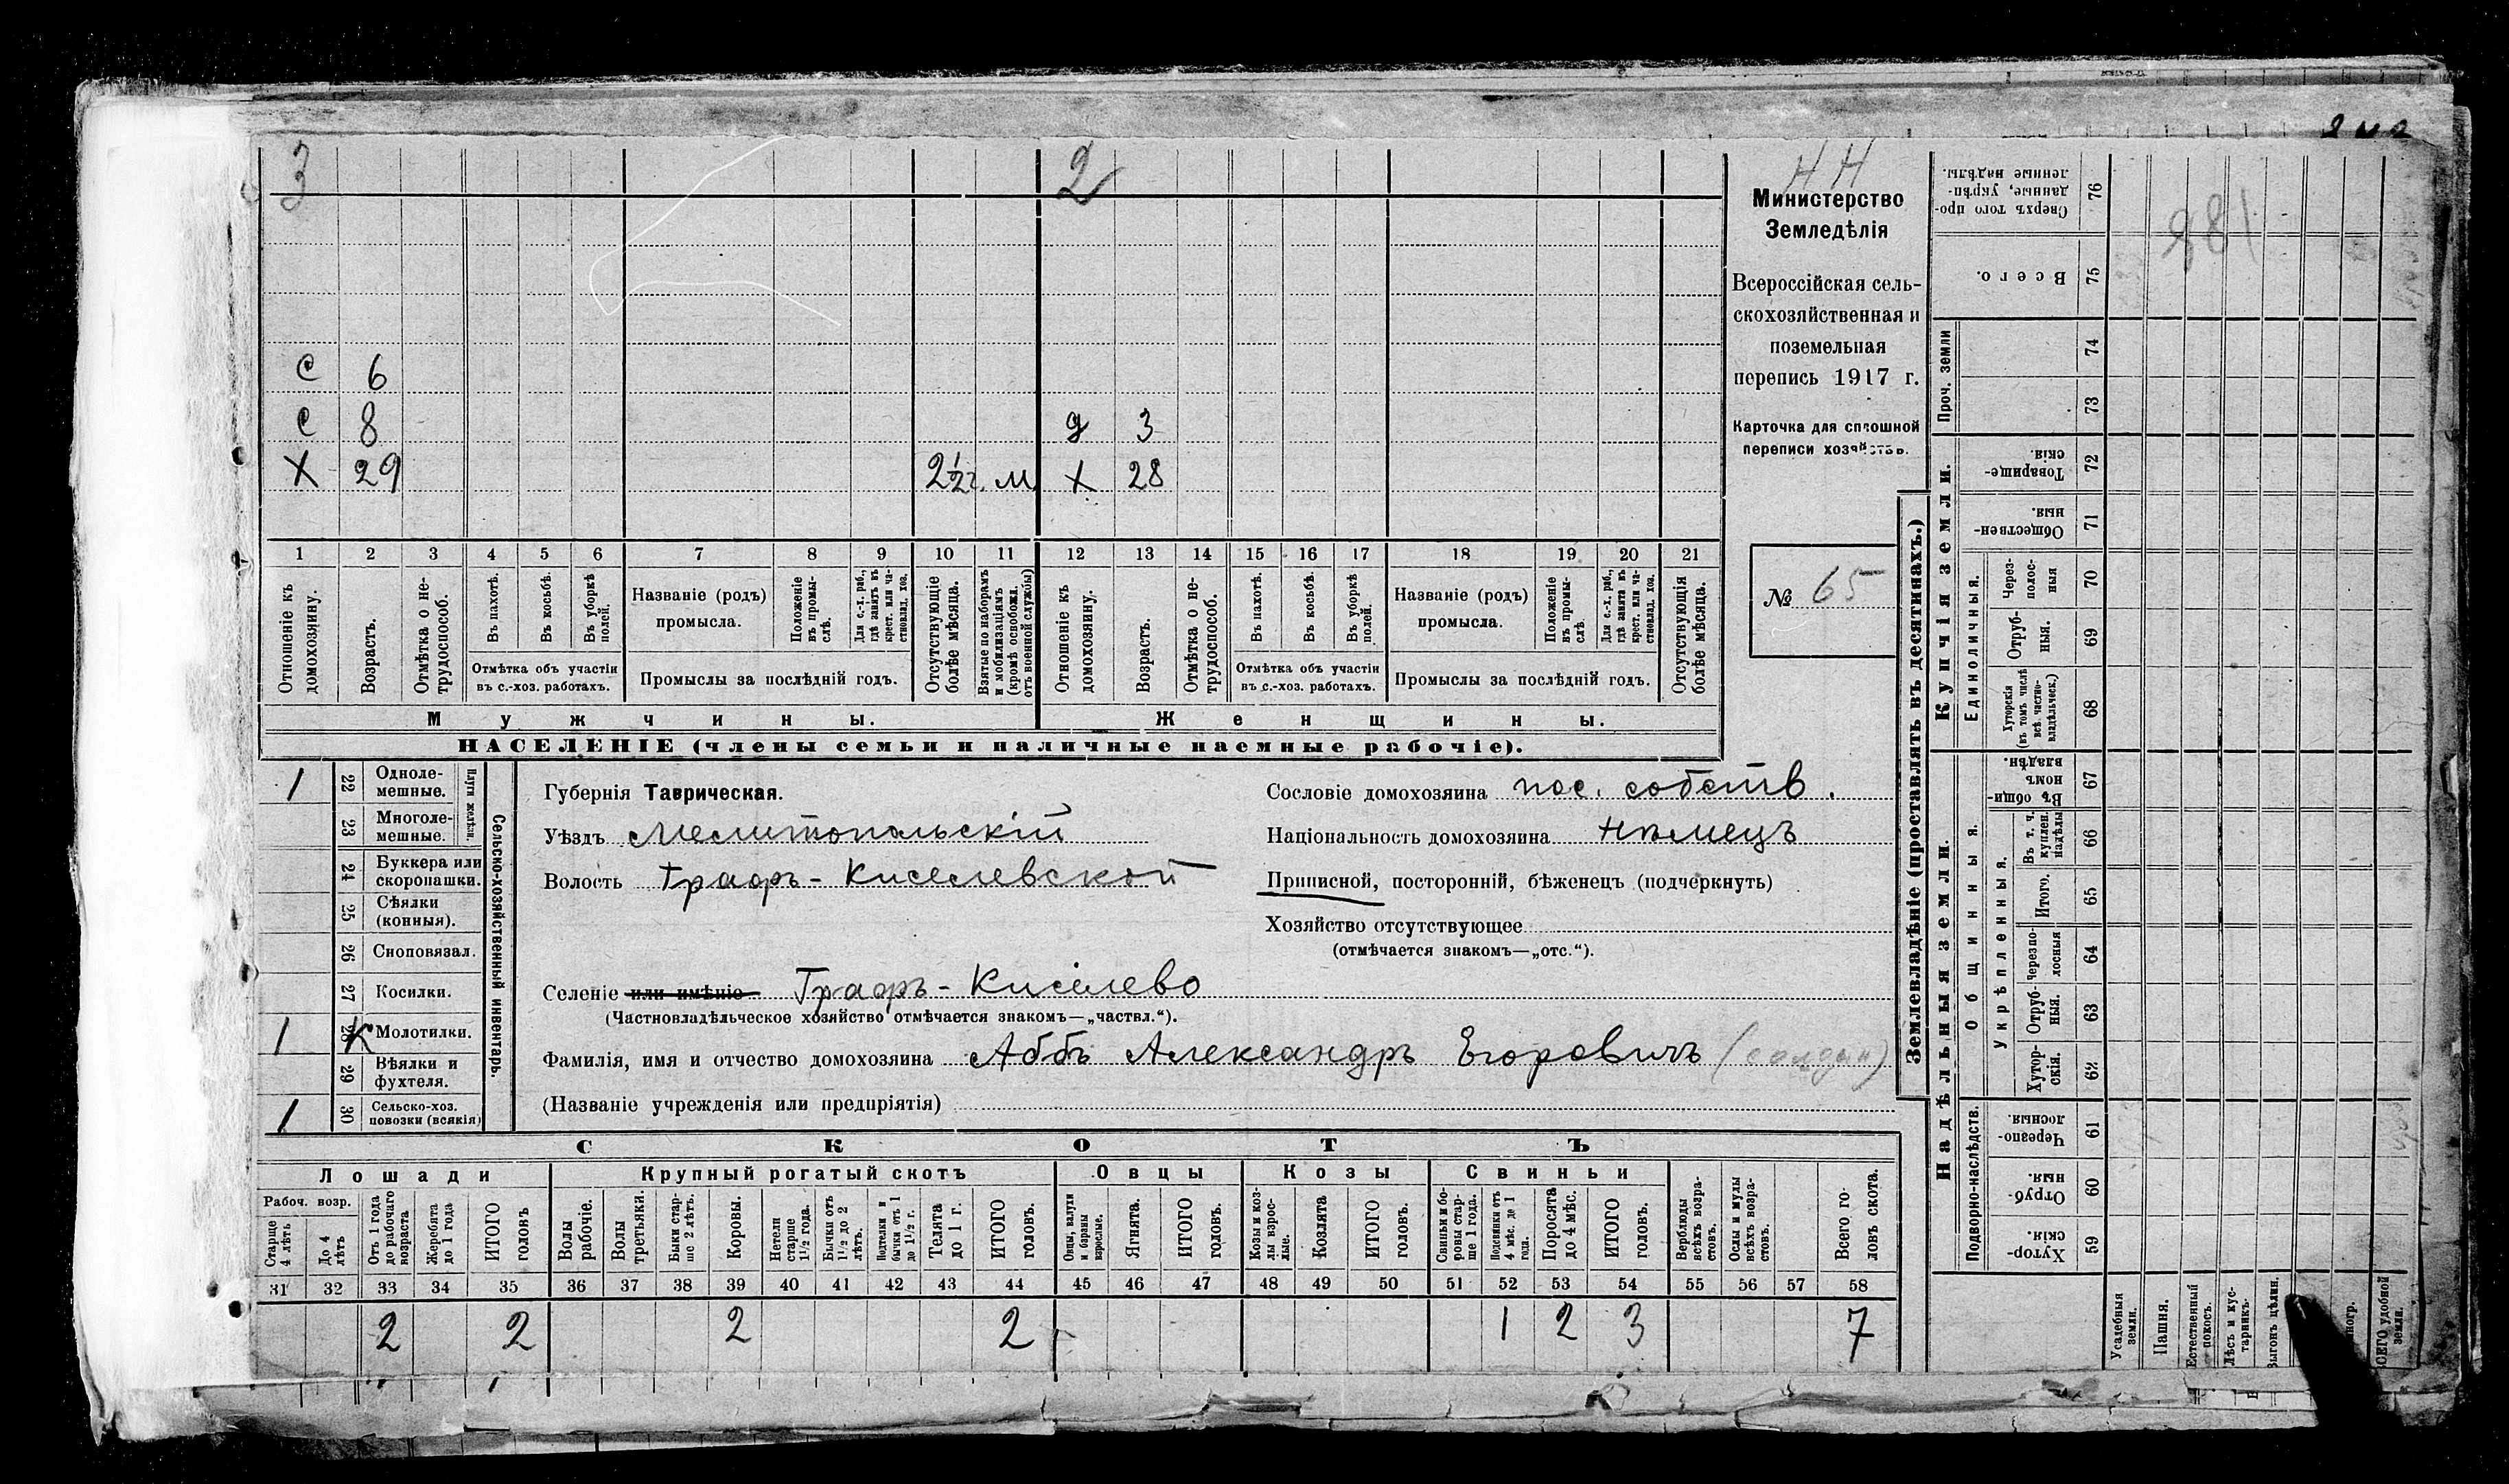 3 2
с 6
с 8 д 3
X 29 2½ г. м. X 28
1 2 3 4 5 6 7 8 9 10 11 12 13 14 15 16 17 18 19 20 21
Отношеніе къ домохозяину.
Возрастъ.
Отмѣтка о не-трудоспособ.
Въ пахотѣ.
Въ косьбѣ.
Въ уборкѣ полей.
Отмѣтка объ участіи
въ с.-хоз. работахъ.
Названіе (родъ)
промысла.
Положеніе въ промы-слѣ.
Для с.-х. раб., гдѣ занятъ въ крест. или ча-ствовлад. хоз.
Промыслы за послѣдній годъ.
Отсутствующіе болѣе мѣсяца.
Взятые по наборамъ и мобилизаціямъ (кромѣ освобожд. отъ военной службы)
Отношеніе къ домохозяину.
Возрастъ.
Отмѣтка о не-трудоспособ.
Въ пахотѣ.
Въ косьбѣ.
Въ уборкѣ полей.
Отмѣтка объ участіи
въ с.-хоз. работахъ.
Названіе (родъ)
промысла.
Положеніе въ промы-слѣ.
Для с.-х. раб., гдѣ занята въ крест. или ча-ствовлад. хоз.
Промыслы за послѣдній годъ.
Отсутствующія болѣе мѣсяца.
Мужчины. Женщины.
НАСЕЛЕНІЕ (члены семьи и наличные наемные рабочіе).
НН
Министерство
Земледѣлія
Всероссійская сель-
скохозяйственная и
поземельная
перепись 1917 г.
Карточка для сплошной
переписи хозяйствъ.
№ 65
1 22 Одноле-мешные.
23 Многоле-мешные.
Плуги желѣзн.
24 Буккера или скоропашки.
25 Сѣялки (конныя).
26 Сноповязал.
27 Косилки.
1 К 28 Молотилки.
29 Вѣялки и фухтеля.
1 30 Сельско-хоз. повозки (всякія)
Сельско-хозяйственный инвентарь.
Губернія Таврическая.
Уѣздъ Мелитопольскій
Волость Графъ-Киселевской
Селеніе или имѣніе Графъ-Киселево
(Частновладѣльческое хозяйство отмѣчается знакомъ—„частвл.“).
Фамилія, имя и отчество домохозяина Аббъ Александръ Егоровичъ
(Названіе учрежденія или предпріятія)
Сословіе домохозяина пос. собств.
Національность домохозяина нѣмецъ
Приписной, посторонній, бѣженецъ (подчеркнуть)
Хозяйство отсутствующее
(отмѣчается знакомъ—„отс.“).
СКОТЪ
Лошади Крупный рогатый скотъ Овцы Козы Свиньи
Рабоч. возр.
Старше 4 лѣтъ
До 4 лѣтъ
Отъ 1 года до рабочаго возраста
Жеребята до 1 года
ИТОГО головъ
Волы рабочіе.
Волы третьяки.
Быки стар-ше 2 лѣтъ.
Коровы.
Нетели старше 1½ года.
Бычки отъ 1½ до 2 лѣтъ.
Подтелки и бычки отъ 1 до 1½ г.
Телята до 1 г.
ИТОГО головъ.
Овцы, валухи и бараны взрослые.
Ягнята.
ИТОГО головъ.
Козы и коз-лы взрос-лые.
Козлята
ИТОГО головъ.
Свиньи и бо-ровы стар-ше 1 года.
Подсвинки отъ 4 мѣс. до 1 года.
Поросята до 4 мѣс.
ИТОГО головъ.
Верблюды всѣхъ возра-стовъ.
Ослы и мулы всѣхъ возра-стовъ.
Всего го-ловъ скота.
31 32 33 34 35 36 37 38 39 40 41 42 43 44 45 46 47 48 49 50 51 52 53 54 55 56 57 58
2 2 2 2 1 2 3 7
Землевладѣніе (проставлять въ десятинахъ.)
Надѣльныя земли. Купчія земли. Проч. земли
Подворно-наслѣдств.
Общинныя.
Укрѣпленныя.
Единоличныя.
Сверхъ того про-данные, укрѣп-ленные надѣлы. 76
Всего. 75
74
73
Товарище-скія. 72
Обществен-ныя. 71
Через-полос-ныя 70
Отруб-ныя. 69
Хуторскія (въ томъ числѣ всѣ частно-владѣльческ.) 68
Въ общин-номъ владѣн. 67
Въ т. ч. куплен. надѣлы 66
Итого. 65
Черезпо-лосныя 64
Отруб-ныя. 63
Хутор-скія. 62
Черезпо-лосныя. 61
Отруб-ныя. 60
Хутор-скія. 59
Усадебныя земли.
Пашня.
Естественный покосъ.
Лѣсъ и кус-тарникъ.
Выгонъ цѣлин.
ВСЕГО удобной земли.
188